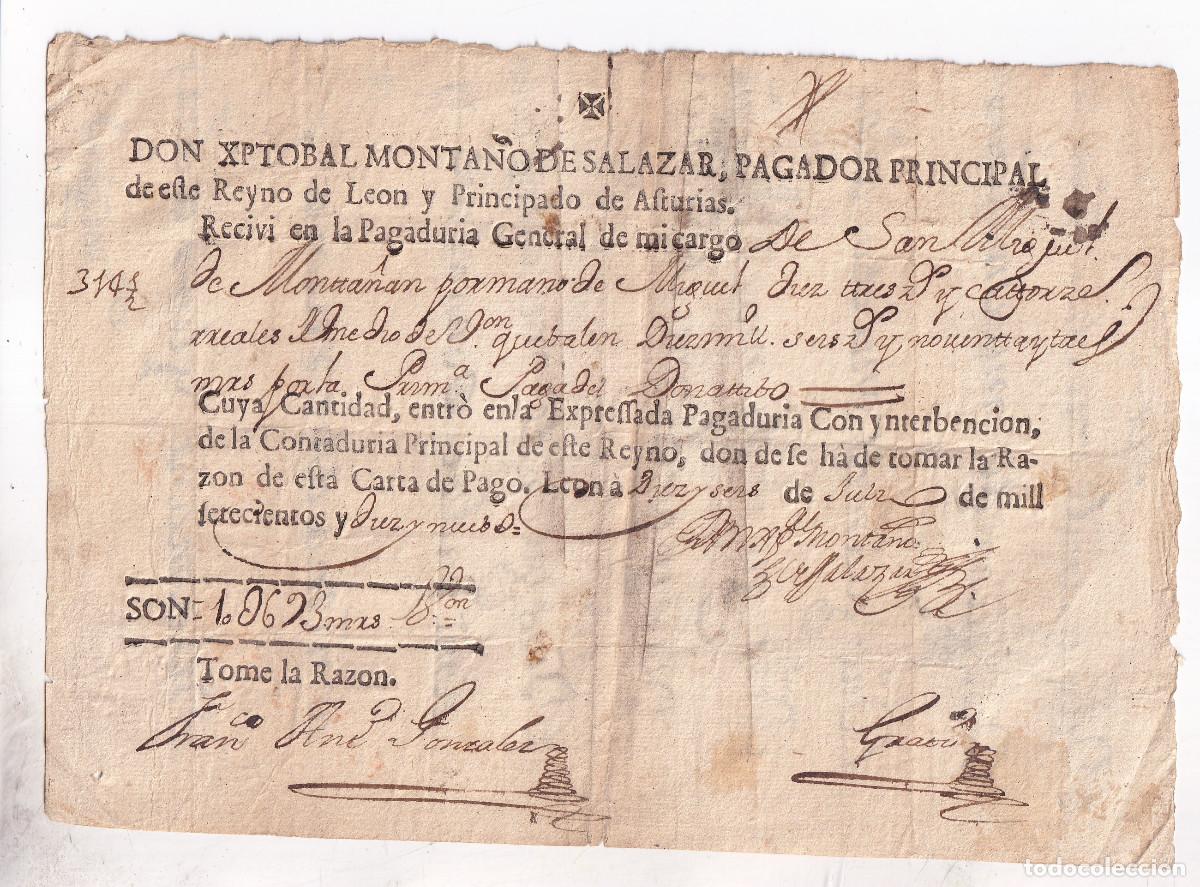 DON XPTOBAL MONTAÑO DE SALAZAR, PAGADOR PRINCIPAL
de este Reyno de Leon y Principado de Asturias.
Recivi en la Pagaduria General de mi cargo De San Miguel
314 1/2
de Monttañan por mano de Miguel Diez ttres y Cattorze
rreales y medio de Von que balen Diez mill seis y noventta y tres
mrs por la Prima Paga del Donattibo
Cuya Cantidad, entrò en la Expressada Pagaduria Con ynterbencion,
de la Contaduria Principal de este Reyno, don de se hà de tomar la Ra-
zon de esta Carta de Pago. Leon à Diez y seis de Julio de mill
setecientos y Diez y nuebe
Dn Xpl Montaño
de Salazar
SON 10693 mrs Von
Tome la Razon.
Franco Gonzalez
Gratis
todocoleccion